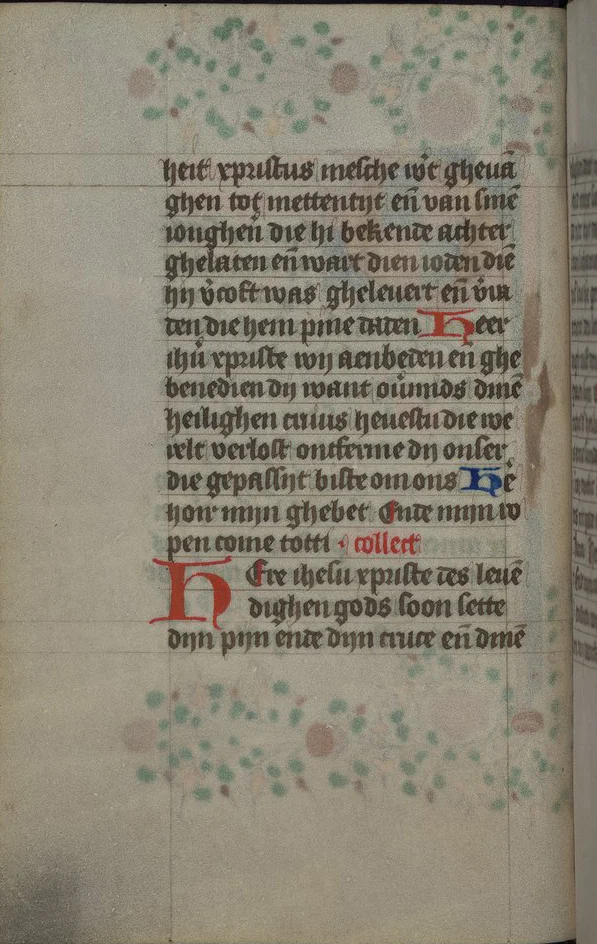 heit xpristus mesche wt ghevā
ghen tot mettentijt eñ van sinē
iongheñ die hi bekende achter
ghelaten eñ wart dien ioden diē
hij v̄coft was ghelevert eñ v̄ra
den die hem pine daden Heer
ihū xpriste wij aenbeden eñ ghe
benedien dij want ov̄mids dinē
heilighen cruus hevestu die we
relt verlost ontferme dij onser
die gepassijt biste om ons Hē
hoir mijn ghebet Ende mijn ro
pen come totti · collect
HEre ihesu xpriste des levē
dighen gods soon sette
dijn pijn ende dijn cruce eñ dinē